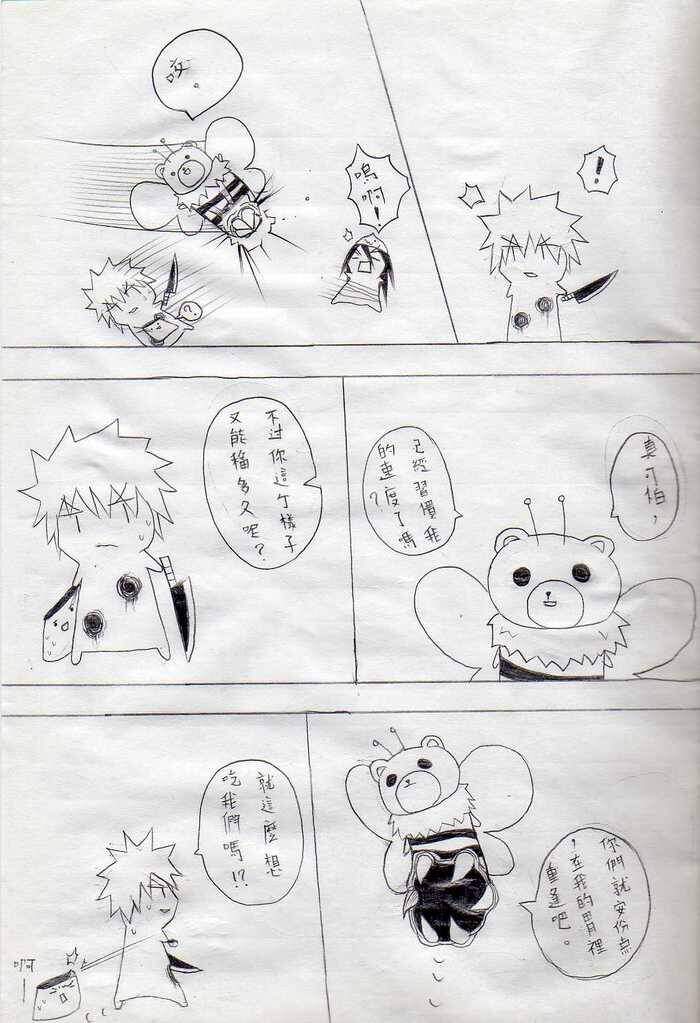 !
嗚啊!
咬。
真可怕,
已經習慣我
的速度了嗎
?
不过你這个樣子
又能稱多久呢?
你們就安份点
,在我的胃裡
重逢吧。
就這麼想
吃我們嗎!?
啊—
?